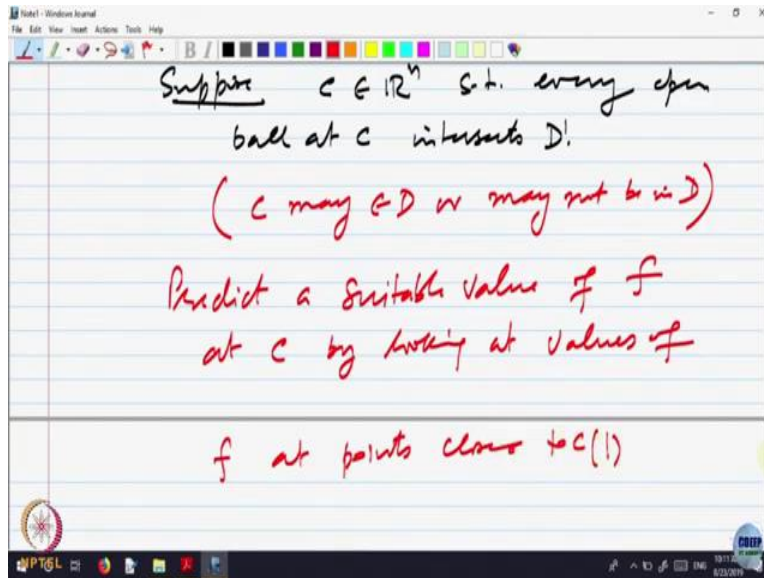 Note1 - Windows Journal
File Edit View Insert Actions Tools Help
B I
Suppose c ∈ ℝⁿ s.t. every open
ball at c intersects D!
( c may ∈ D or may not be in D)
Predict a suitable value of f
at c by looking at values of
f at points close to c (!)
NPTEL
ENG
8/23/2019
CDEEP